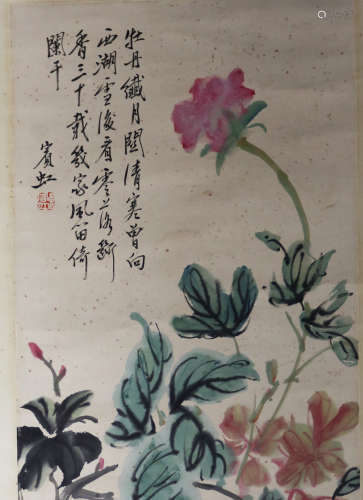 牡丹纖月閟清寒曾向
西湖雪後看零落斷
香三十載幾家風笛倚
闌干
賓虹